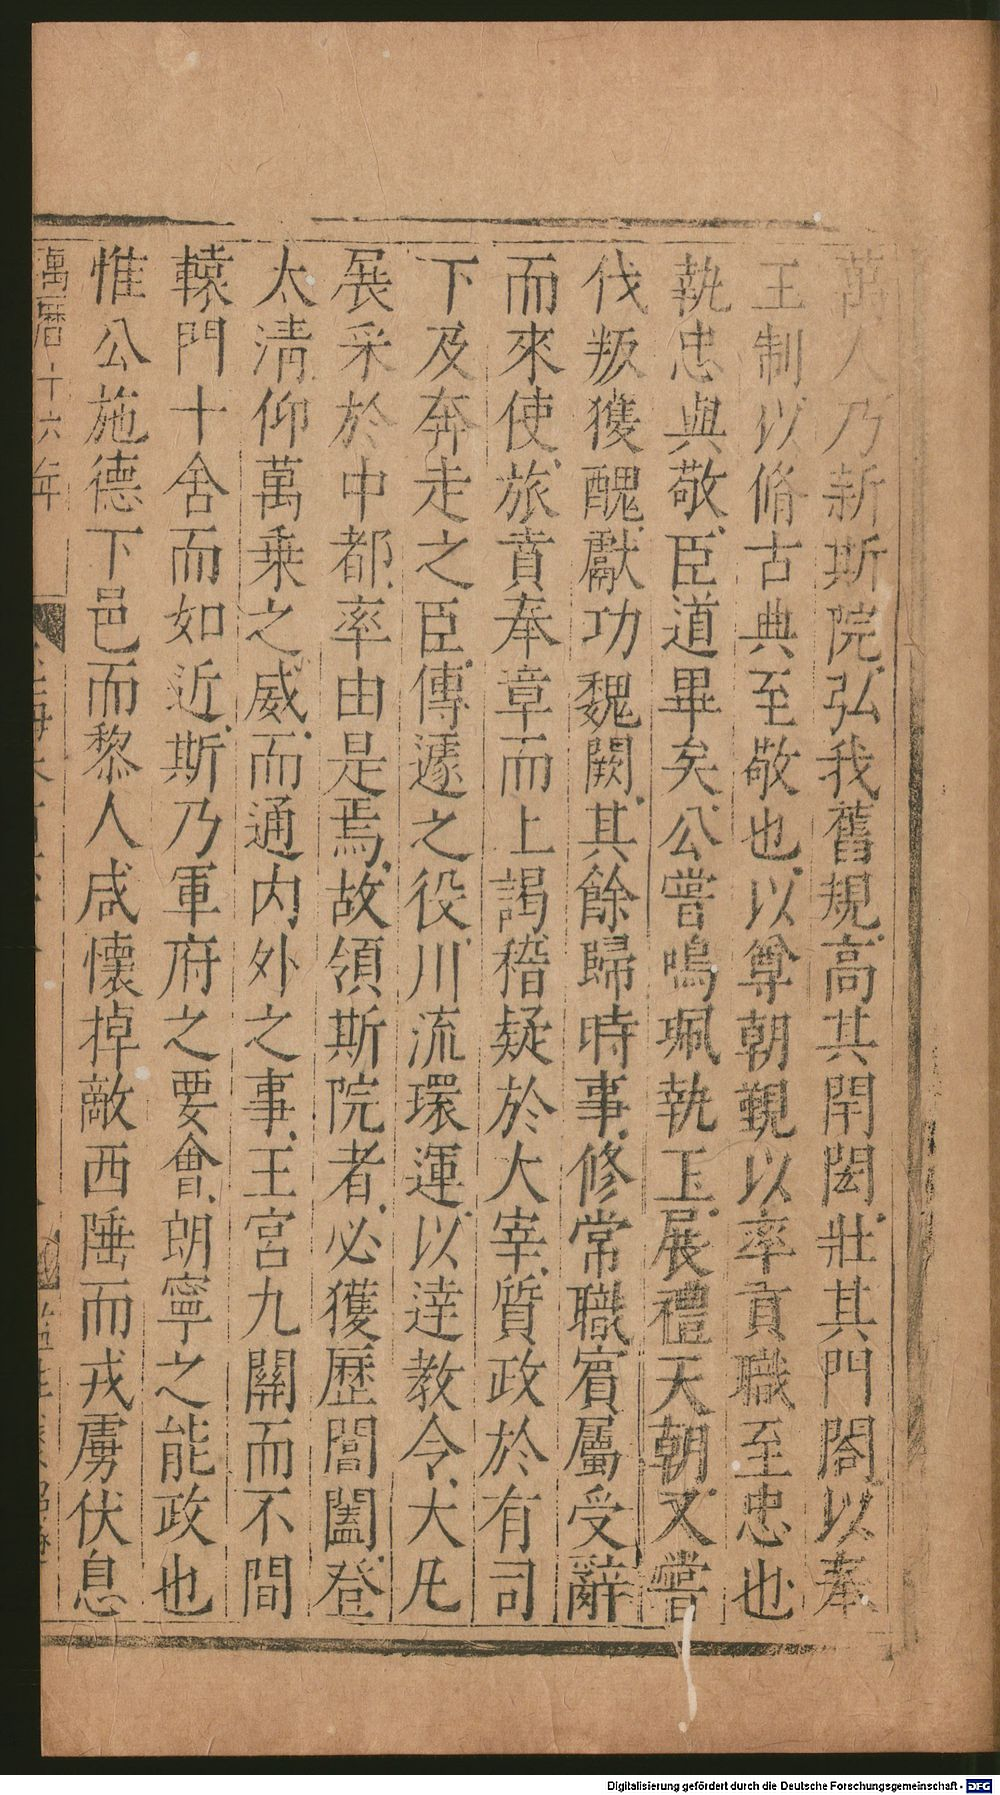 萬人乃新斯院弘我舊規高其閈閎壯其門閤以奉
王制以脩古典至敬也以尊朝覲以率貢職至忠也
執忠與敬臣道畢矣公嘗鳴珮執玉展禮天朝又嘗
伐叛獲醜獻功魏闕其餘歸時事修常職賓屬受辭
而來使旅賁奉章而上謁稽疑於大宰質政於有司
下及奔走之臣傳遽之役川流環運以達教令大凡
展采於中都率由是焉故領斯院者必獲歷閶闔登
太清仰萬乗之威而通内外之事王宮九關而不間
轅門十舍而如近斯乃軍府之要會朗寧之能政也
惟公施德下邑而黎人咸懷掉敵西陲而戎虜伏息
萬曆十六年
Digitalisierung gefördert durch die Deutsche Forschungsgemeinschaft - DFG